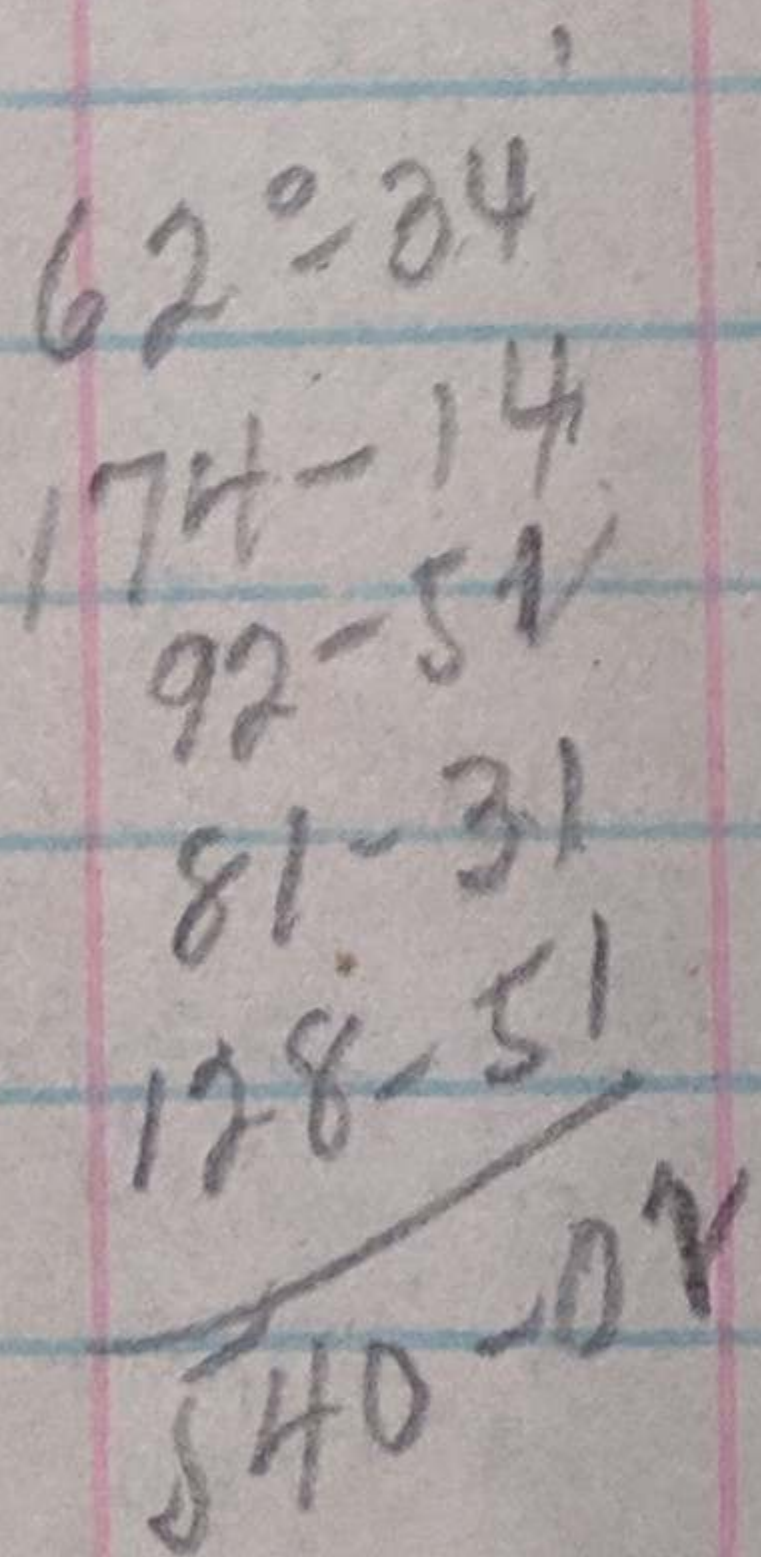 62° - 34'
174 - 14
92 -
81 - 31
128 - 51
540 -